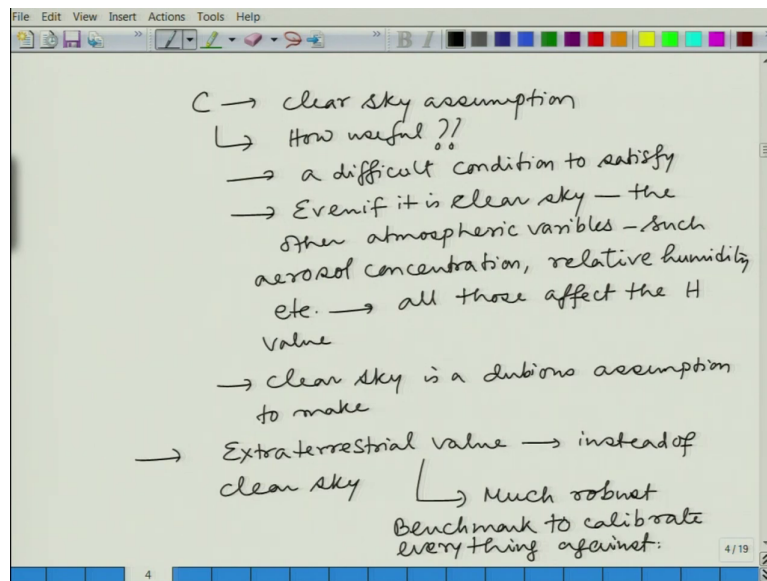 File Edit View Insert Actions Tools Help
B I
C → clear sky assumption
↳ How useful ??
→ a difficult condition to satisfy
→ Even if it is clear sky — the
other atmospheric varibles - such
aerosol concentration, relative humidity
etc. → all those affect the H
value
→ clear sky is a dubious assumption
to make
→ Extraterrestrial value → instead of
clear sky
↳ Much robust
Benchmark to calibrate
everything against.
4/19
4